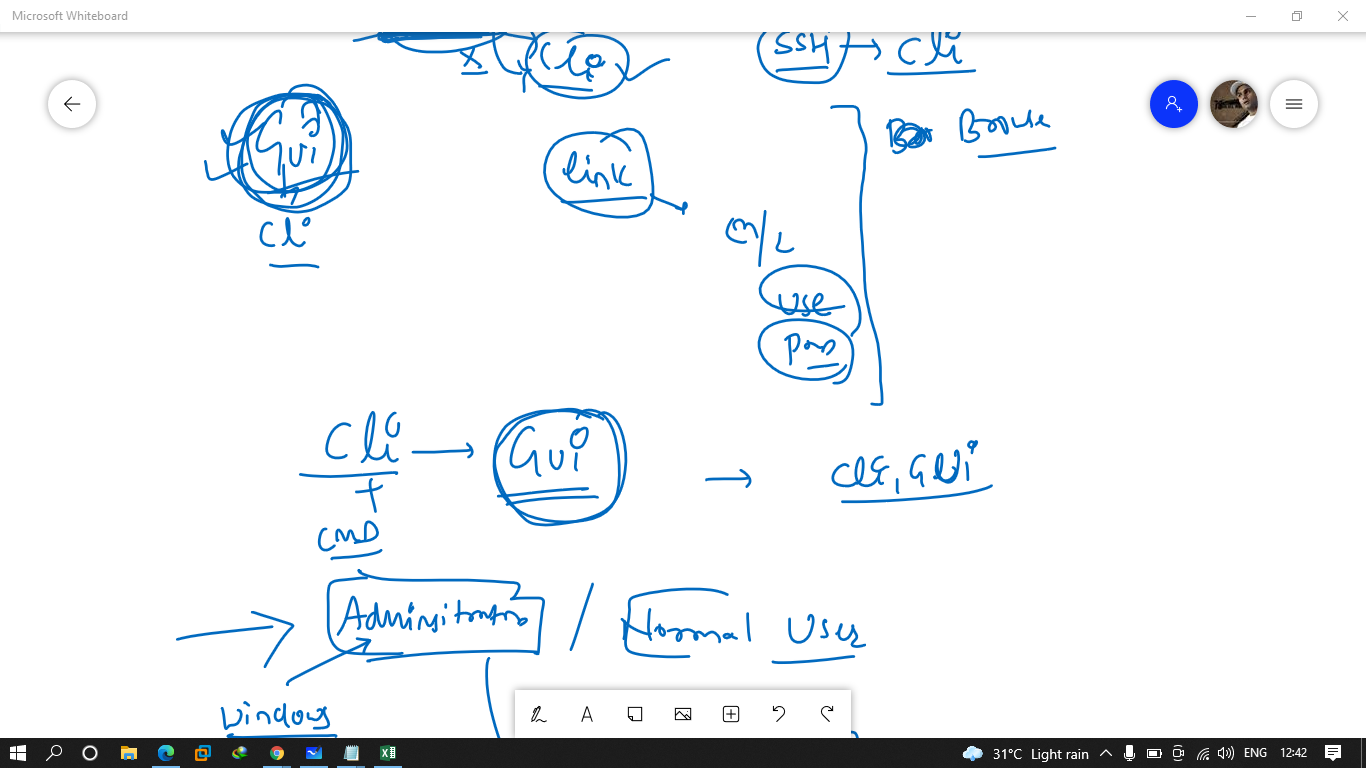 Microsoft Whiteboard
x Cli SSH → Cli
Gui
Cli
link
Browse
m/L
Use
Pass
Cli → Gui → Cli, GUi
+
CMD
Adminsitrator / Normal User
Windows
A
31°C Light rain ENG 12:42